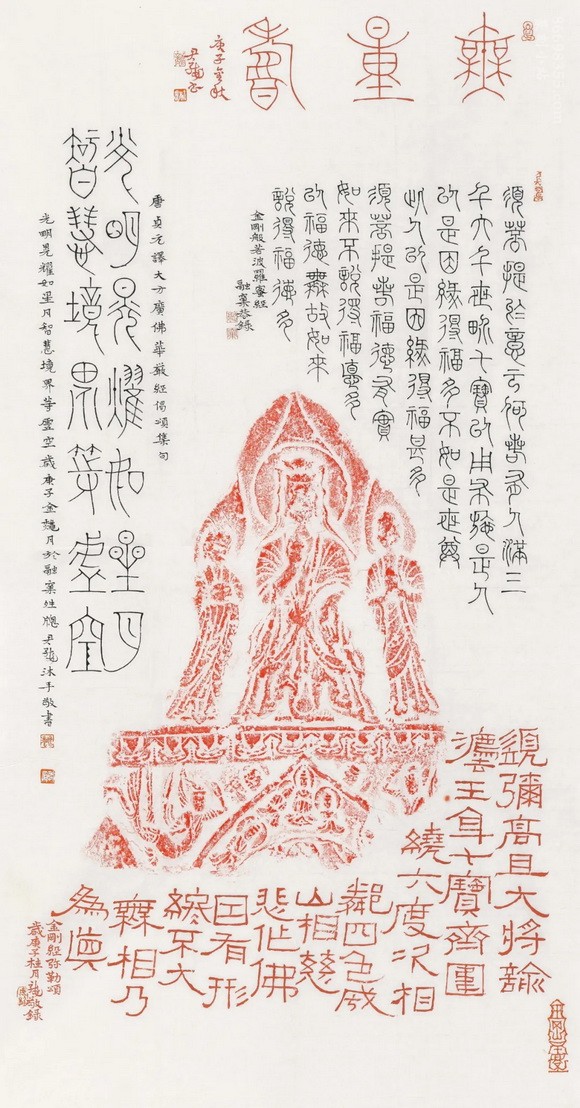 無量壽
庚子金秋
須菩提於意云何若有人滿三
千大千世畍七寶以用布施是人
以是因緣得福多不如是世尊
此人以是因緣得福甚多
須菩提若福德有實
如來不說得福悳多
以福德無故如來
說得福德多
金剛般若波羅蜜經
融齋恭錄
唐貞元譯大方廣佛華嚴經偈頌集句
光明晃耀如星月
智慧境界等虛空
光明晃耀如星月智慧境界等虛空歲庚子金 月於融齋 沐手敬書
須彌高且大將諭
灋王身七寶齊圍
繞六度次相
鄰四色成
山相慈
悲作佛
因有形
終不大
無相乃
為真
金剛經弥勒頌
歲庚子桂月 敬錄